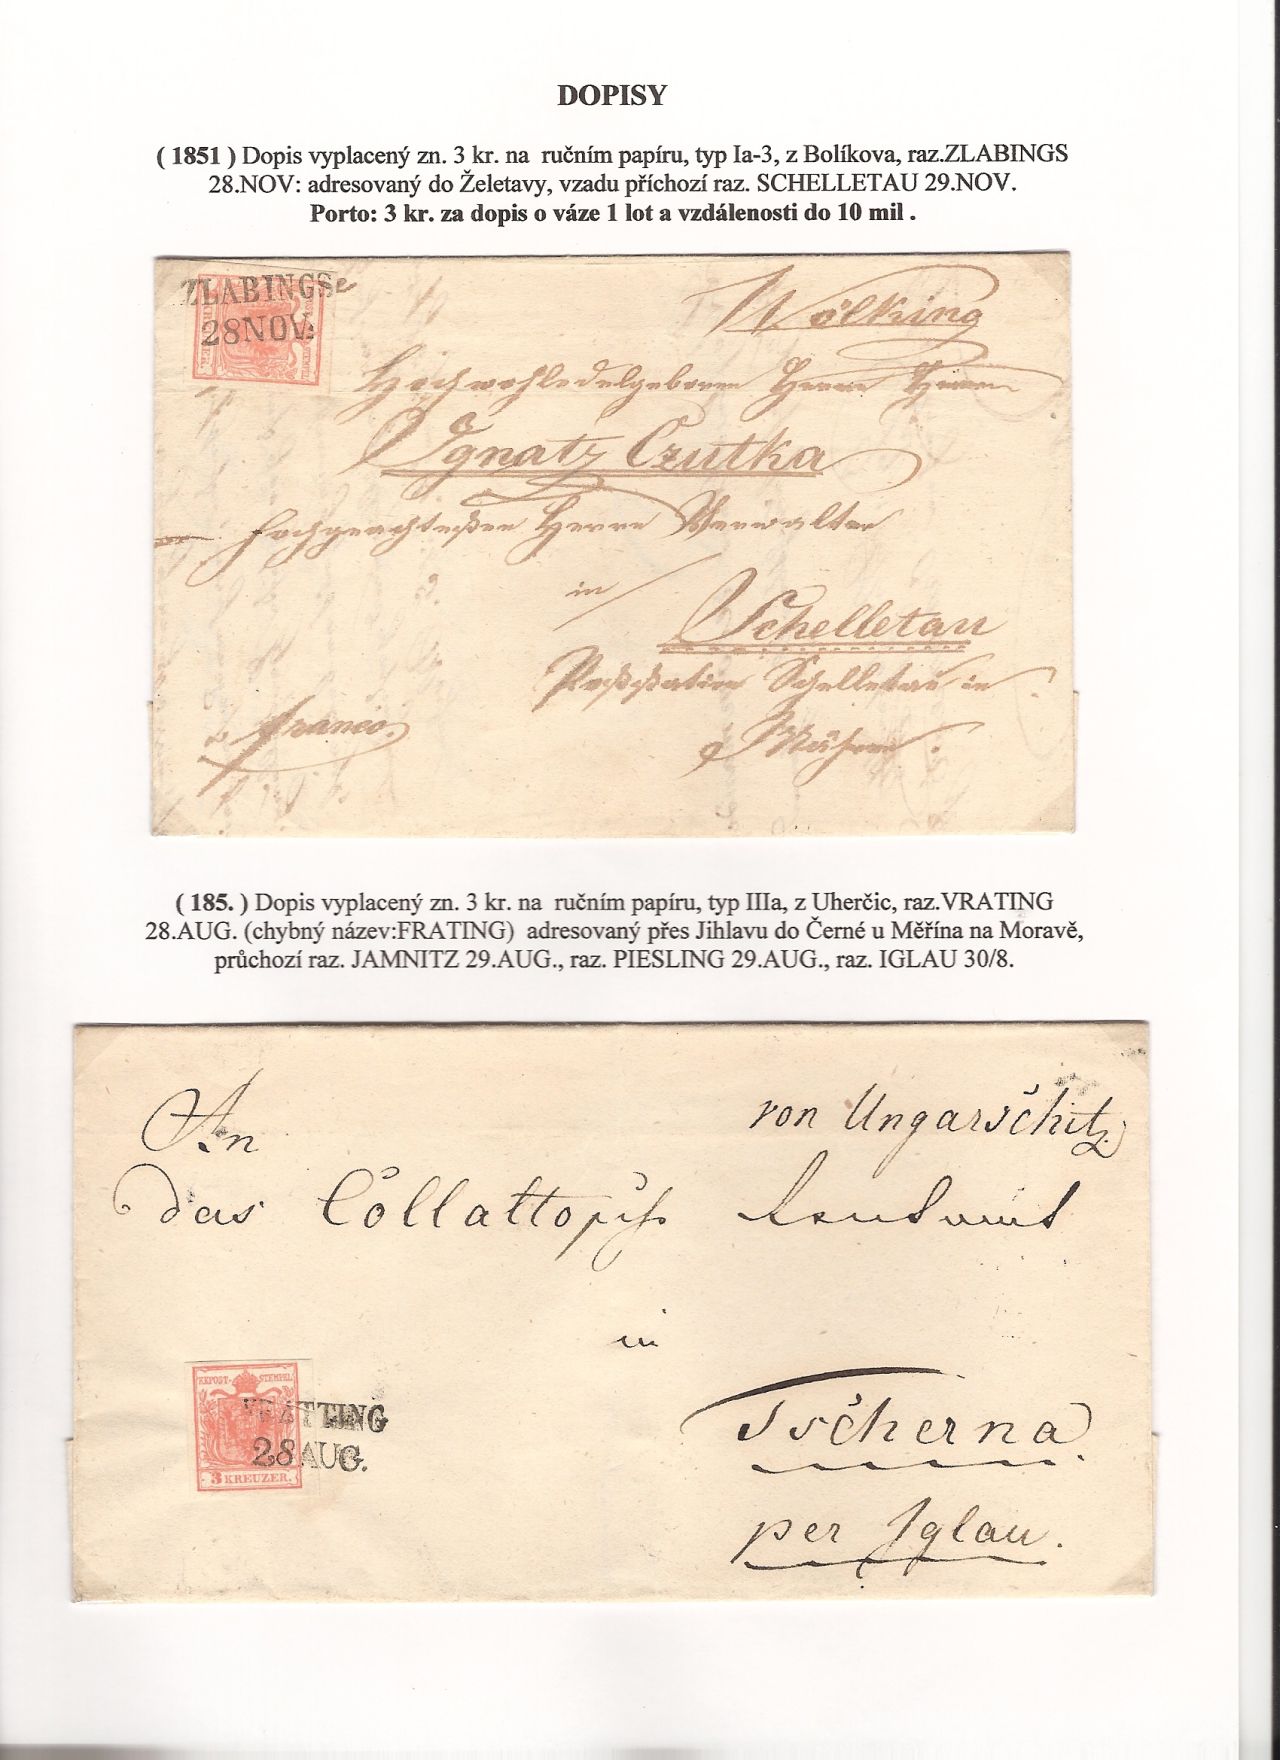 DOPISY
( 1851 ) Dopis vyplacený zn. 3 kr. na ručním papíru, typ Ia-3, z Bolíkova, raz.ZLABINGS
28.NOV: adresovaný do Želetavy, vzadu příchozí raz. SCHELLETAU 29.NOV.
Porto: 3 kr. za dopis o váze 1 lot a vzdálenosti do 10 mil .
ZLABINGS
28NOV:
Wölking
Hochwohledelgeboren Herrn Herrn
Ignatz Czutka
Herrn Verwalter
in
Schelletau
Poststation Schelletau in
Mähren
franco.
( 185. ) Dopis vyplacený zn. 3 kr. na ručním papíru, typ IIIa, z Uherčic, raz.VRATING
28.AUG. (chybný název:FRATING) adresovaný přes Jihlavu do Černé u Měřína na Moravě,
průchozí raz. JAMNITZ 29.AUG., raz. PIESLING 29.AUG., raz. IGLAU 30/8.
An
von Ungarschitz
das Collalto
in
KKPOST-STEMPEL
VRATTING
28AUG.
3 KREUZER.
Tscherna.
per Iglau.